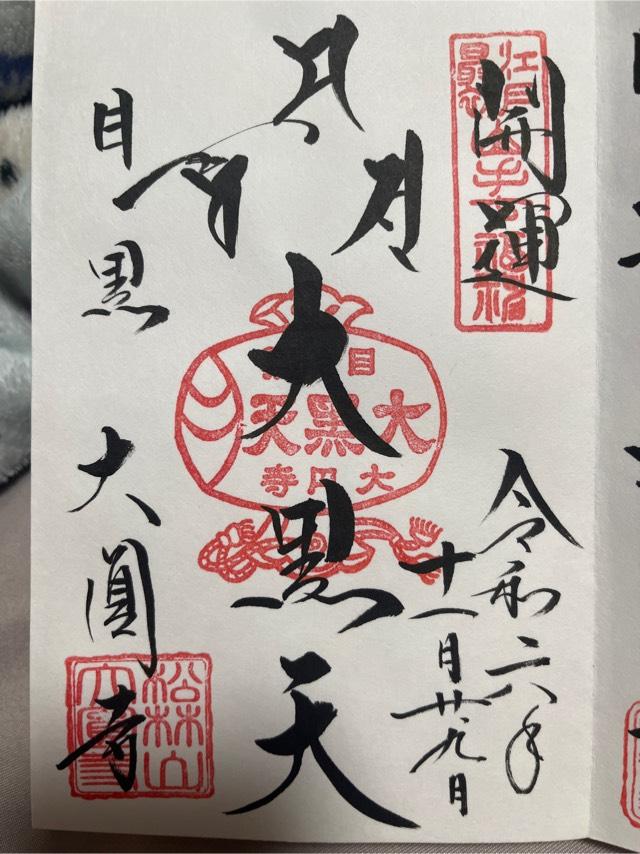 開運
江戸最初山手七福神
令和六年
十一月廿九日
大黒天
目黒
大黒天
大円寺
目黒 大圓寺
松林山
大圓寺